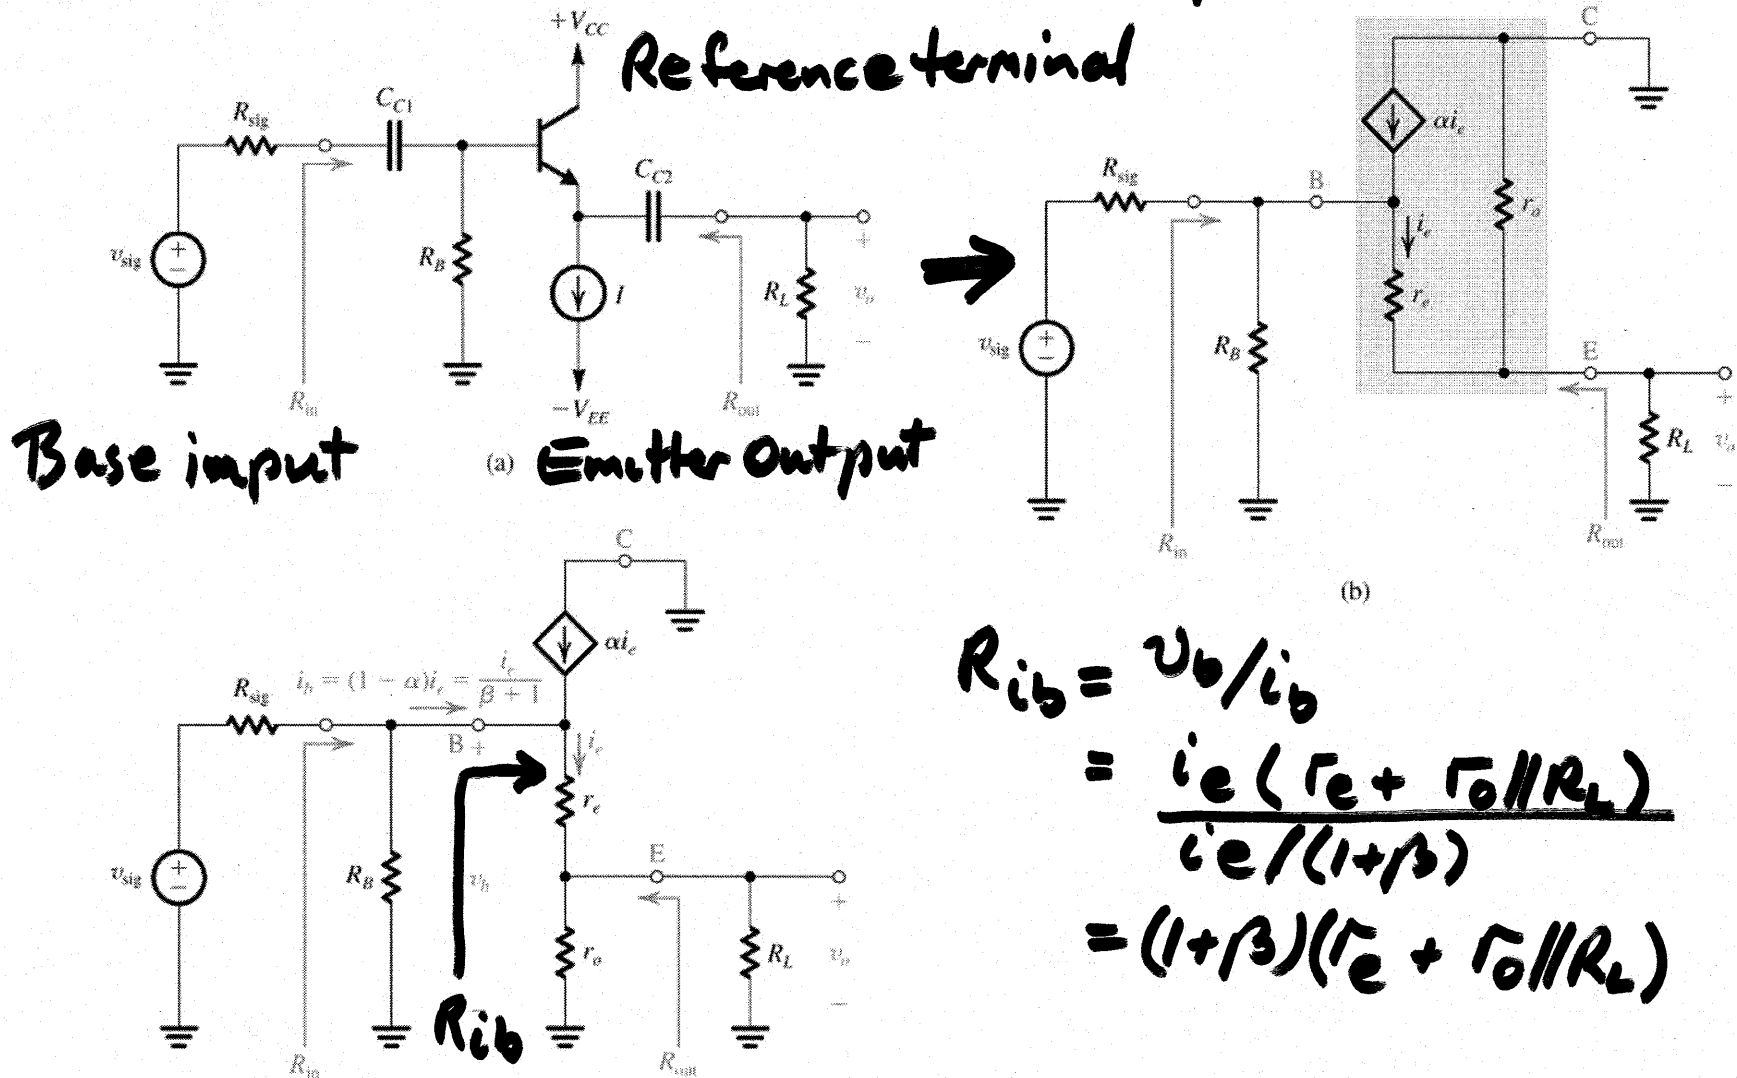 Reference terminal
+V_CC
R_sig
C_C1
C_C2
v_sig
+
−
R_B
I
R_L
+
v_o
−
R_in
−V_EE
R_out
Base imput
(a)
Emitter Output
C
αi_e
R_sig
B
i_e
r_o
r_e
v_sig
+
−
R_B
E
R_L
+
v_o
−
R_in
R_out
(b)
C
αi_e
R_sig
i_b = (1 − α)i_e = i_e / (β + 1)
B +
i_e
r_e
v_sig
+
−
R_B
v_b
E
r_o
R_L
+
v_o
−
R_in
R_ib
R_out
R_ib = v_b/i_b
= i_e (r_e + r_o//R_L)
i_e/(1+β)
= (1+β)(r_e + r_o//R_L)